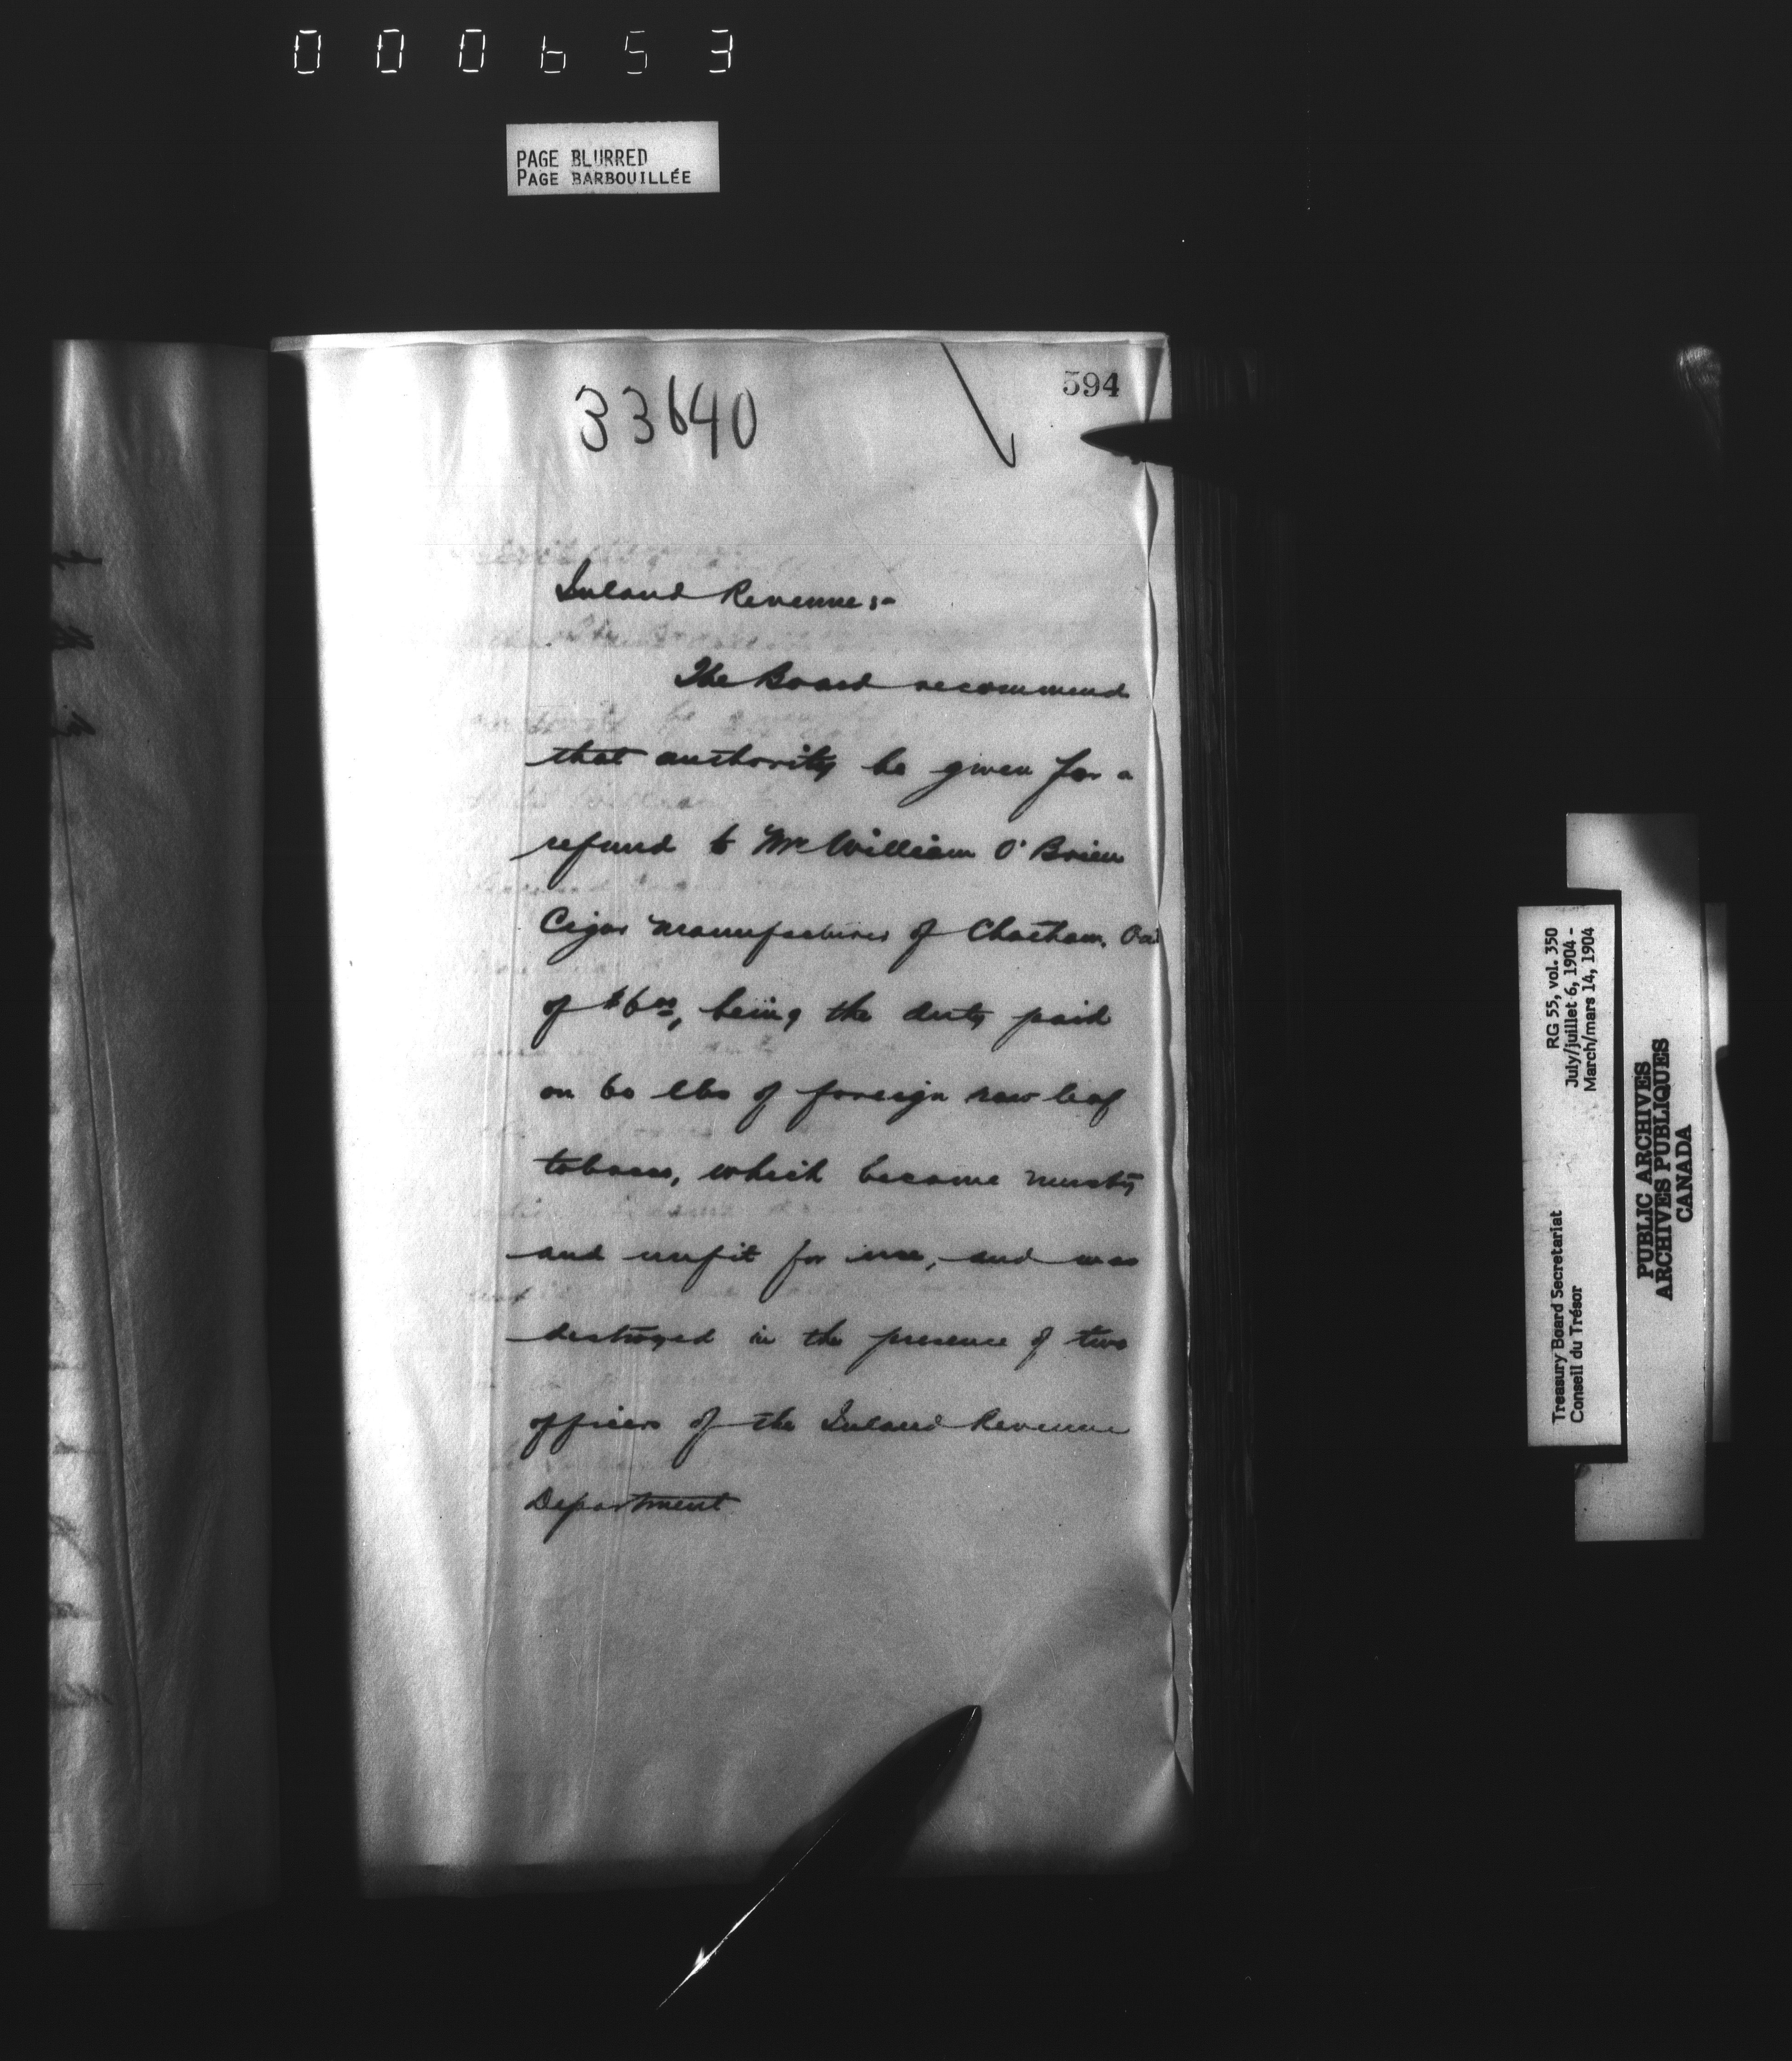 000653
PAGE BLURRED
PAGE BARBOUILLÉE
594
33640
Inland Revenue:-
The Board recommend
that authority be given for a
refund to Mr William O'Brien
Cigar manufacturer of Chatham, Ont
of $6.00, being the duty paid
on 60 lbs of foreign raw leaf
tobacco, which became musty
and unfit for use, and was
destroyed in the presence of two
officers of the Inland Revenue
Department
RG 55, vol. 350
July/juillet 6, 1904 -
March/mars 14, 1904
Treasury Board Secretariat
Conseil du Trésor
PUBLIC ARCHIVES
ARCHIVES PUBLIQUES
CANADA